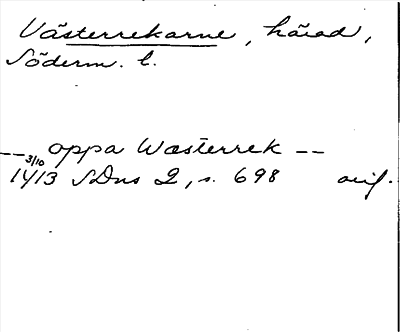 Västerrekarne, härad,
Söderm. l.
-- oppa Wæsterrek --
3/10 1413 SDns 2, s. 698 orig.